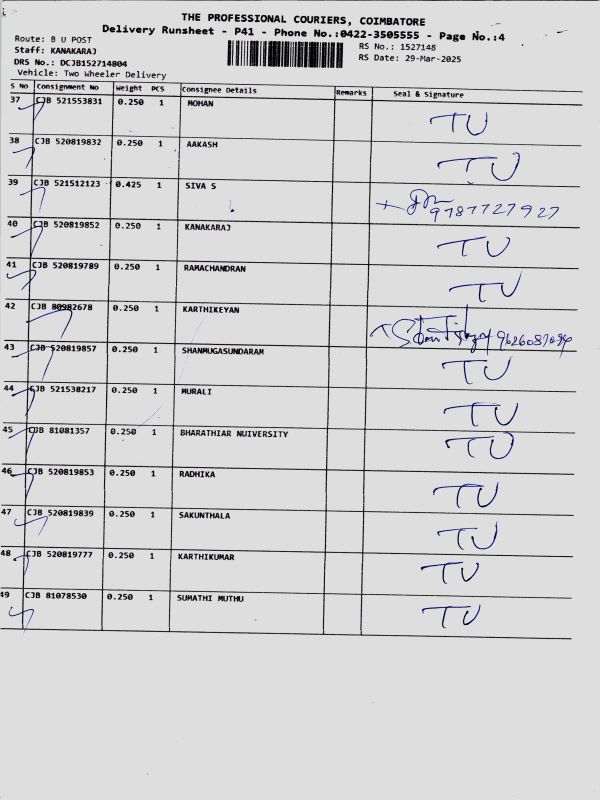 THE PROFESSIONAL COURIERS, COIMBATORE
Delivery Runsheet - P41 - Phone No.:0422-3505555 - Page No.:4
Route: B U POST
RS No.: 1527148
Staff: KANAKARAJ
RS Date: 29-Mar-2025
DRS No.: DCJB152714804
Vehicle: Two Wheeler Delivery
S No Consignment No Weight PCS Consignee Details Remarks Seal & Signature
37 CJB 521553831 0.250 1 MOHAN TU
38 CJB 520819832 0.250 1 AAKASH TU
39 CJB 521512123 0.425 1 SIVA S 9787727927
40 CJB 520819852 0.250 1 KANAKARAJ TU
41 CJB 520819789 0.250 1 RAMACHANDRAN TU
42 CJB 80982678 0.250 1 KARTHIKEYAN
43 CJB 520819857 0.250 1 SHANMUGASUNDARAM TU
44 CJB 521538217 0.250 1 MURALI TU
45 CJB 81081357 0.250 1 BHARATHIAR NUIVERSITY TU
46 CJB 520819853 0.250 1 RADHIKA TU
47 CJB 520819839 0.250 1 SAKUNTHALA TU
48 CJB 520819777 0.250 1 KARTHIKUMAR TU
49 CJB 81078530 0.250 1 SUMATHI MUTHU TU